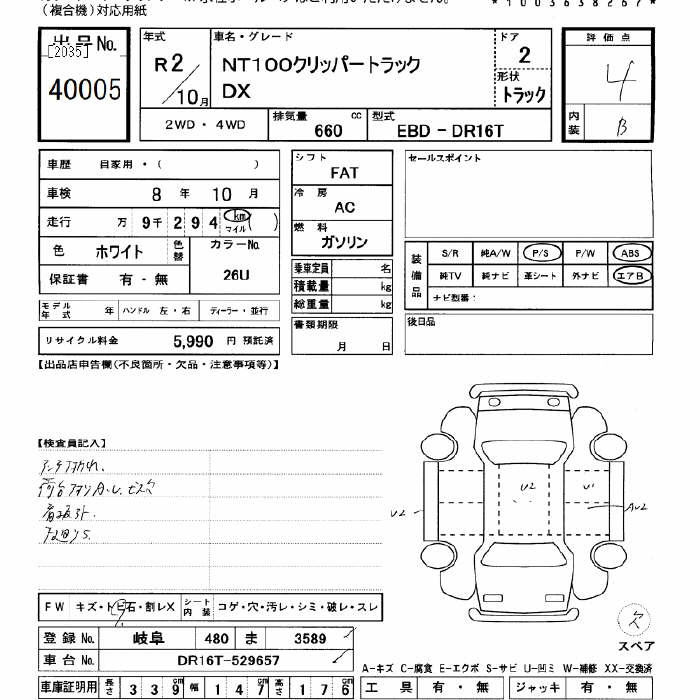 （複合機）対応用紙
*1003638267*
出品No.
[2035]
40005
年式
R2/10月
車名・グレード
NT100クリッパートラック
DX
ドア
2
形状
トラック
評価点
4
内装 B
2WD・4WD
排気量 660 cc
型式 EBD－DR16T
車歴 自家用・（ ）
車検 8年 10月
走行 万 9千 2 9 4 km マイル ( )
色 ホワイト
色替
カラーNo.
26U
保証書 有・無
モデル年式 年
ハンドル 左・右
ディーラー・並行
リサイクル料金 5,990 円 預託済
シフト
FAT
冷房
AC
燃料
ガソリン
乗車定員 名
積載量 kg
総重量 kg
書類期限
月 日
セールスポイント
装備品
S/R 純A/W P/S P/W ABS
純TV 純ナビ 革シート 外ナビ エアB
ナビ型番：
後日品
【出品店申告欄(不良箇所・欠品・注意事項等)】
【検査員記入】
U2
U2
U1
AU2
FW キズ・トビ石・割レX
シート内装 コゲ・穴・汚レ・シミ・破レ・スレ
登録No. 岐阜 480 ま 3589
車台No. DR16T-529657
欠
スペア
A-キズ C-腐食 E-エクボ S-サビ U-凹ミ W-補修 XX-交換済
車庫証明用 長さ 3 3 9cm 幅 1 4 7cm 高さ 1 7 6cm
工具 有・無
ジャッキ 有・無